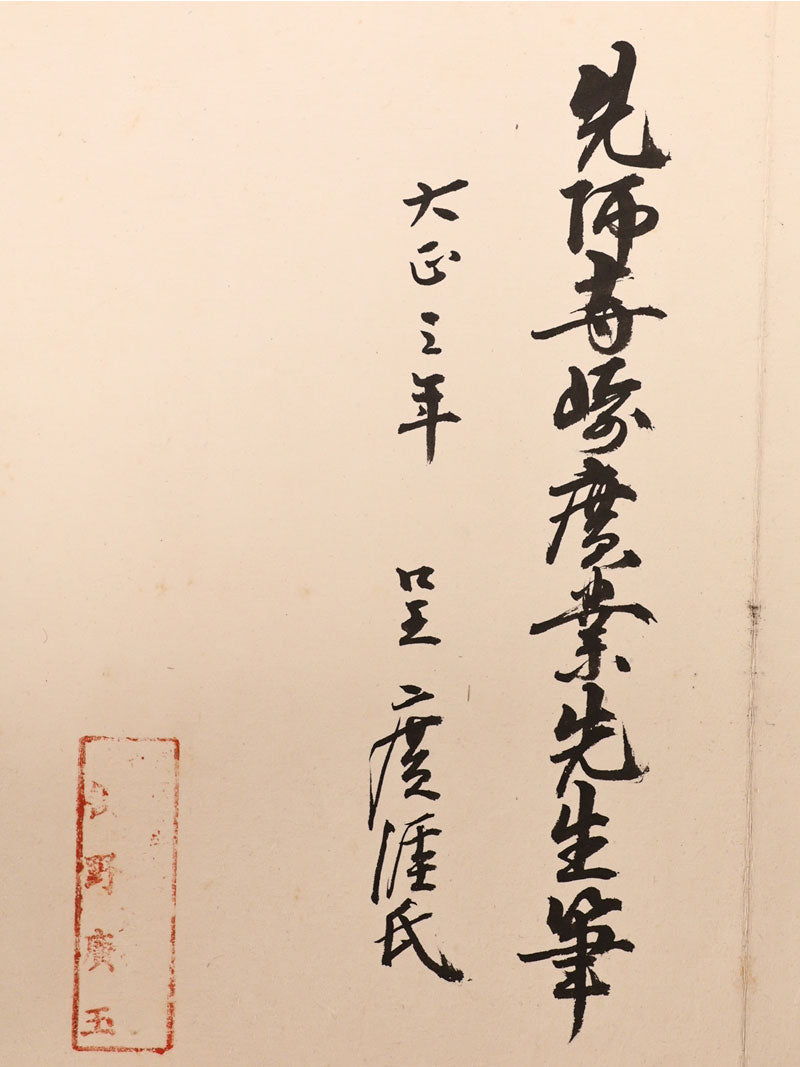 先師寺崎廣業先生筆
大正三年 呈 廣涯氏
野廣玉